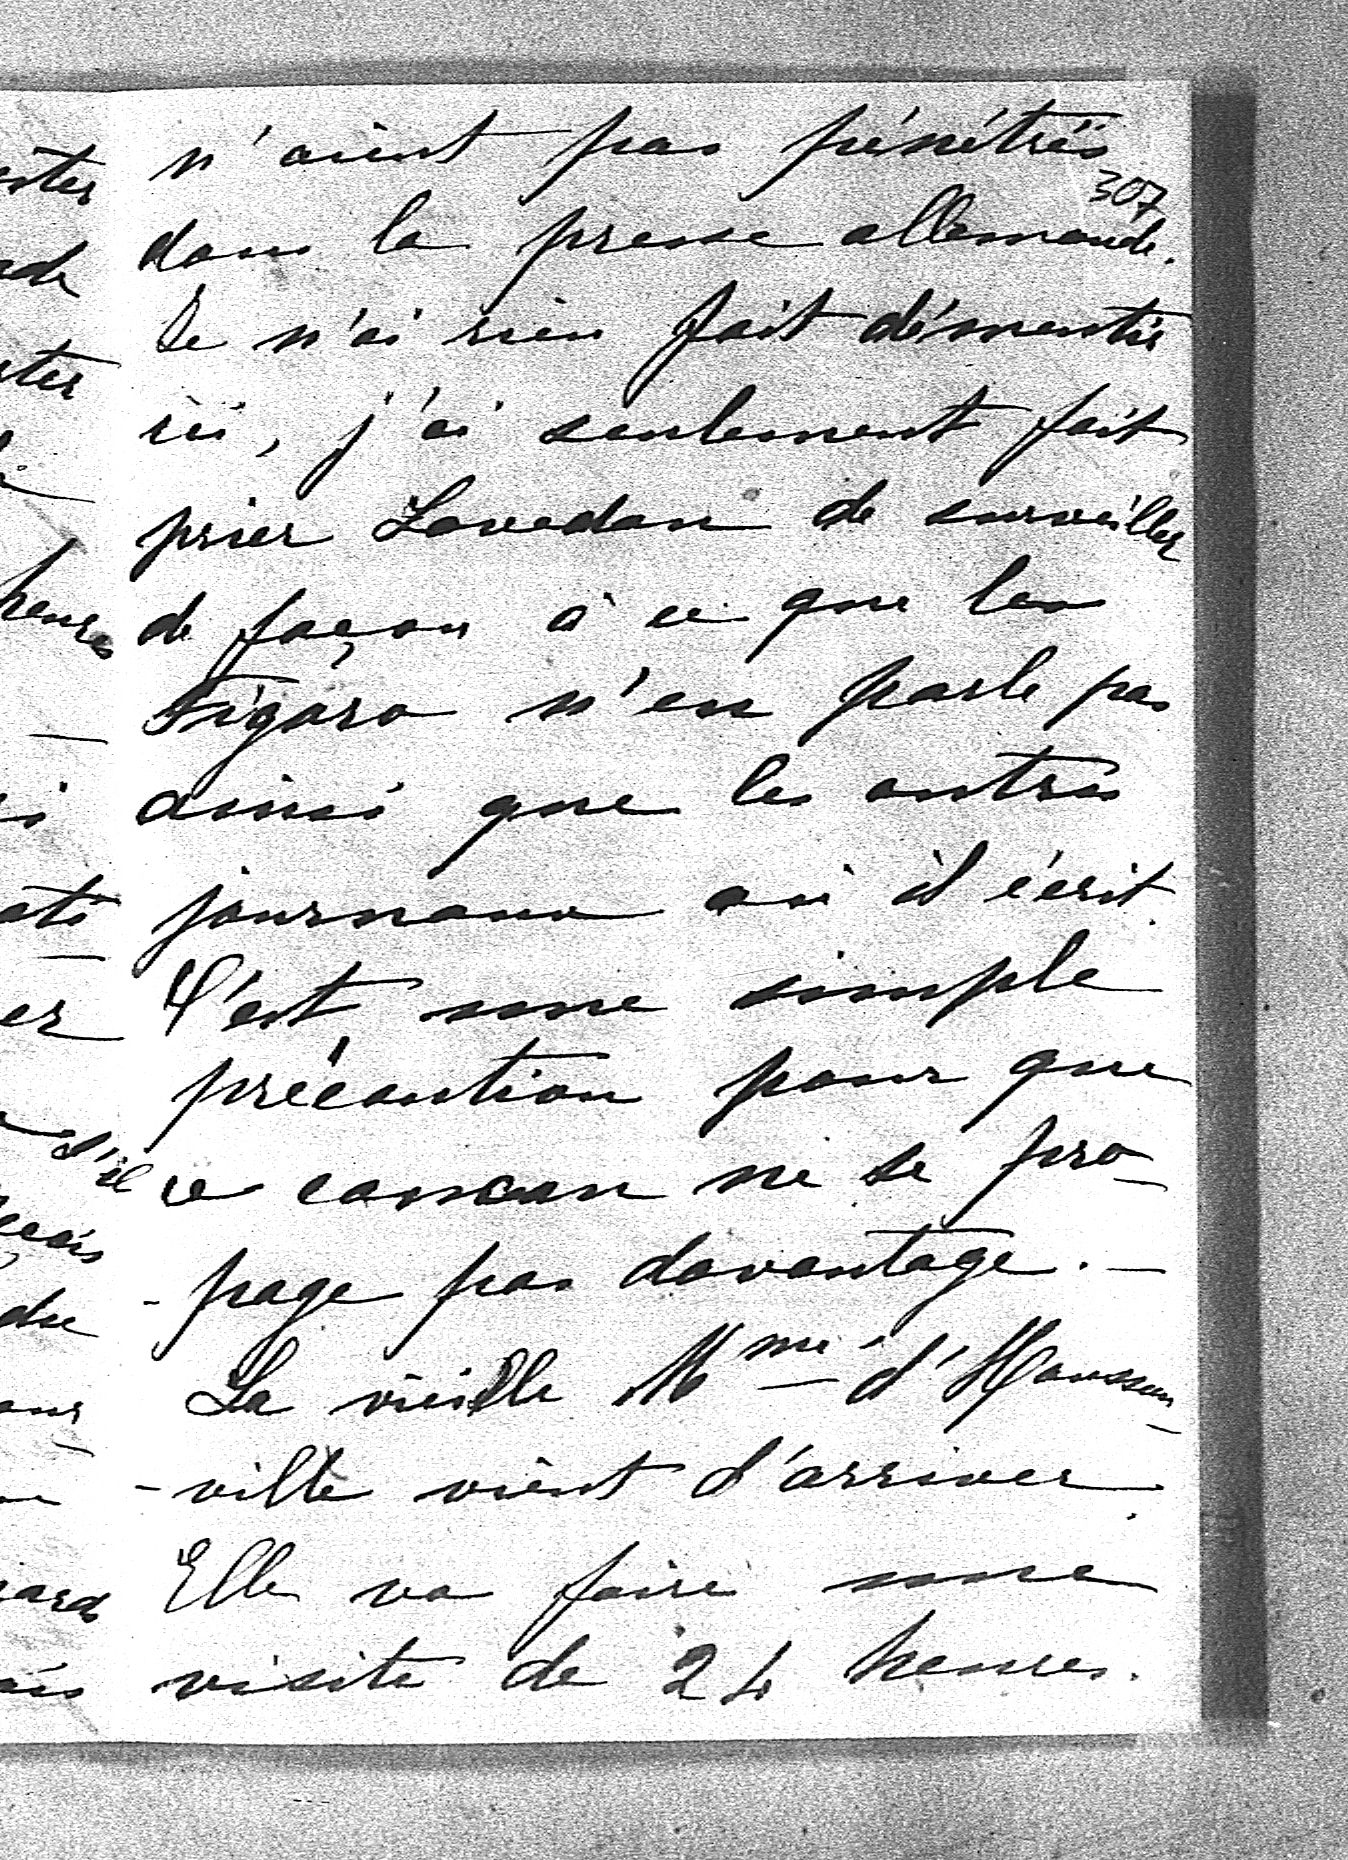 n'aient pas pénétrés
307
dans la presse allemande.
Je n'ai rien fait démentir
ici, j'ai seulement fait
prier Lavedan de surveiller
de façon à ce que les
Figaro n'en parle pas
ainsi que les autres
journaux où il écrit.
C'est une simple
précaution pour que
ce cancan ne se pro-
-page pas davantage. —
La vieille Mme d'Hausson-
-ville vient d'arriver.
Elle va faire une
visite de 24 heures.